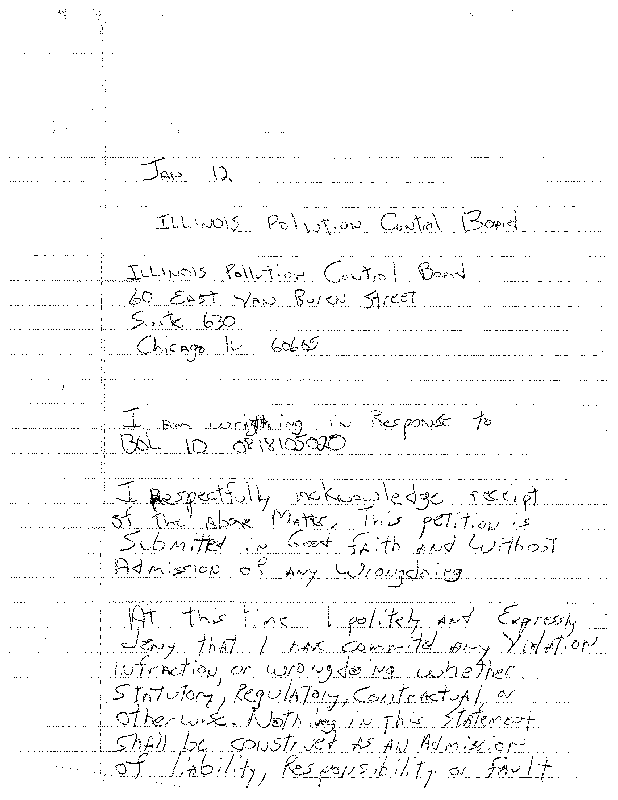 Jan 12
ILLINOIS Pollution Control Board
ILLINOIS Pollution Control Board
60 EAST VAN BUREN STREET
Suite 630
Chicago IL 60605
I am wrigthing in Response to
BOL ID 0818105020
I Respectfully acknowledge receipt
of the above Matter. This petition is
Submitted in Good faith and Without
Admission of any Wrongdoing
At this time I politely and Expressly
deny that I has commited any Violation
infraction, or wrongdoing whether
Statutory, Regulatory, Contractual, or
otherwise. Nothing in this Statement
shall be construed as an Admission
of liability, Responsibility or fault